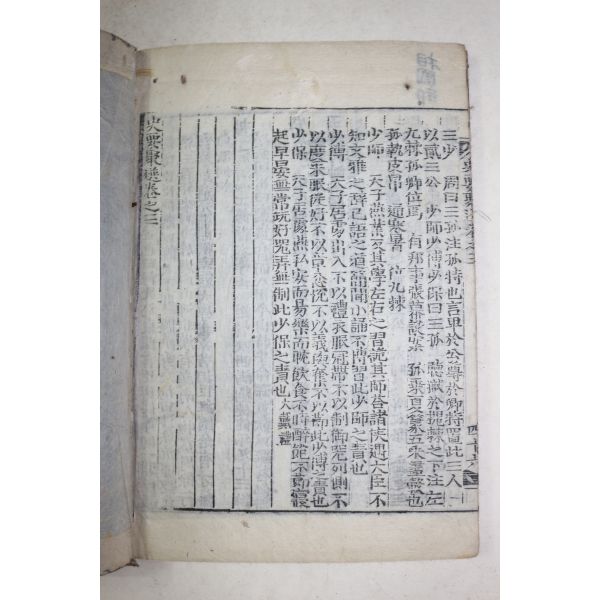 史要聚選卷之三
三少 周曰三孤注孤特也言卑於公尊於卿特置此三人
以貳三公 少師少傅少保曰三孤 聽 於槐棘之下注左
九棘孤卿位焉 孤乘夏篆五采畫轂也
孤執皮帛 通寒暑 位九棘
少師 天子燕業反其學左右之習詭其師答諸侯遇大臣不
知文雅之辭已語之道簡聞小誦不博習此少師之責也
少傅 天子居處出入不以禮衣服冠帶不以制御器列側不
以度采服從好不以章忿悅不以義與奪不以節此少傅之責也
少保 天子居處燕私安而易樂而耽飲食不時醉飽不節寢
起早晏無常玩好器弄無制此少保之責也大戴禮
史要聚選卷之三